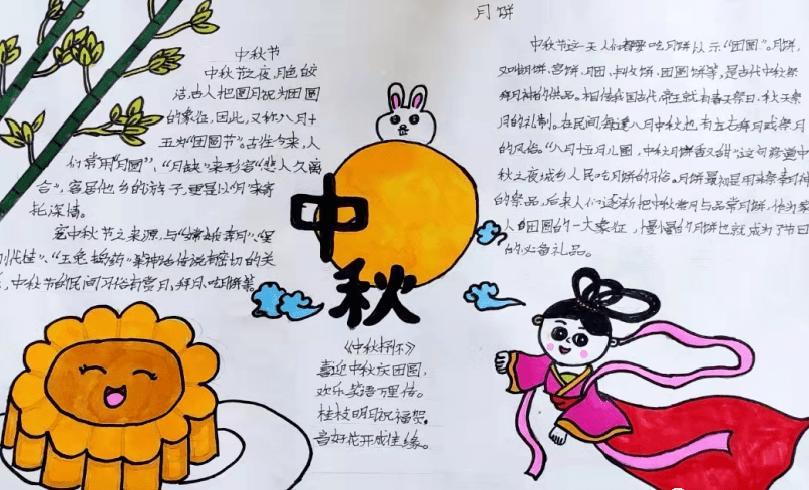 中秋节
中秋节之夜,月色皎
洁,古人把圆月视为团圆
的象征,因此,又称八月十
五为"团圆节"。古往今来,人
们常用"月圆"、"月缺"来形容"悲人久离
合",客居他乡的游子,更是以月来寄
托深情。
中秋节之来源,与"嫦娥奔月"、
、"玉兔捣药"等神话传说有密切的关
,中秋节的民间习俗有赏月、拜月、吃月饼等
中
秋
《中秋
喜迎中秋庆团圆,
欢乐笑语万里传。
桂枝明月祝福贺,
花开成佳缘。
月饼
中秋节这一天人们都要吃月饼以示"团圆"。月饼,
又叫胡饼、宫饼、月团、饼、团圆饼等,是古代中秋祭
拜月神的供品。相传我国古代,帝王就有春天祭日、秋天祭
月的礼制。在民间,每逢八月中秋,也有左右拜月或祭月
的风俗。"八月十五月儿圆,中秋月饼香又甜"这句道中
秋之夜城乡人民吃月饼的习俗。月饼最初是用来祭奉月神
的祭品,后来人们逐渐把中秋赏月与品尝月饼,作为家
人团圆的一大象征,慢慢的月饼也就成为了节日
的必备礼品。